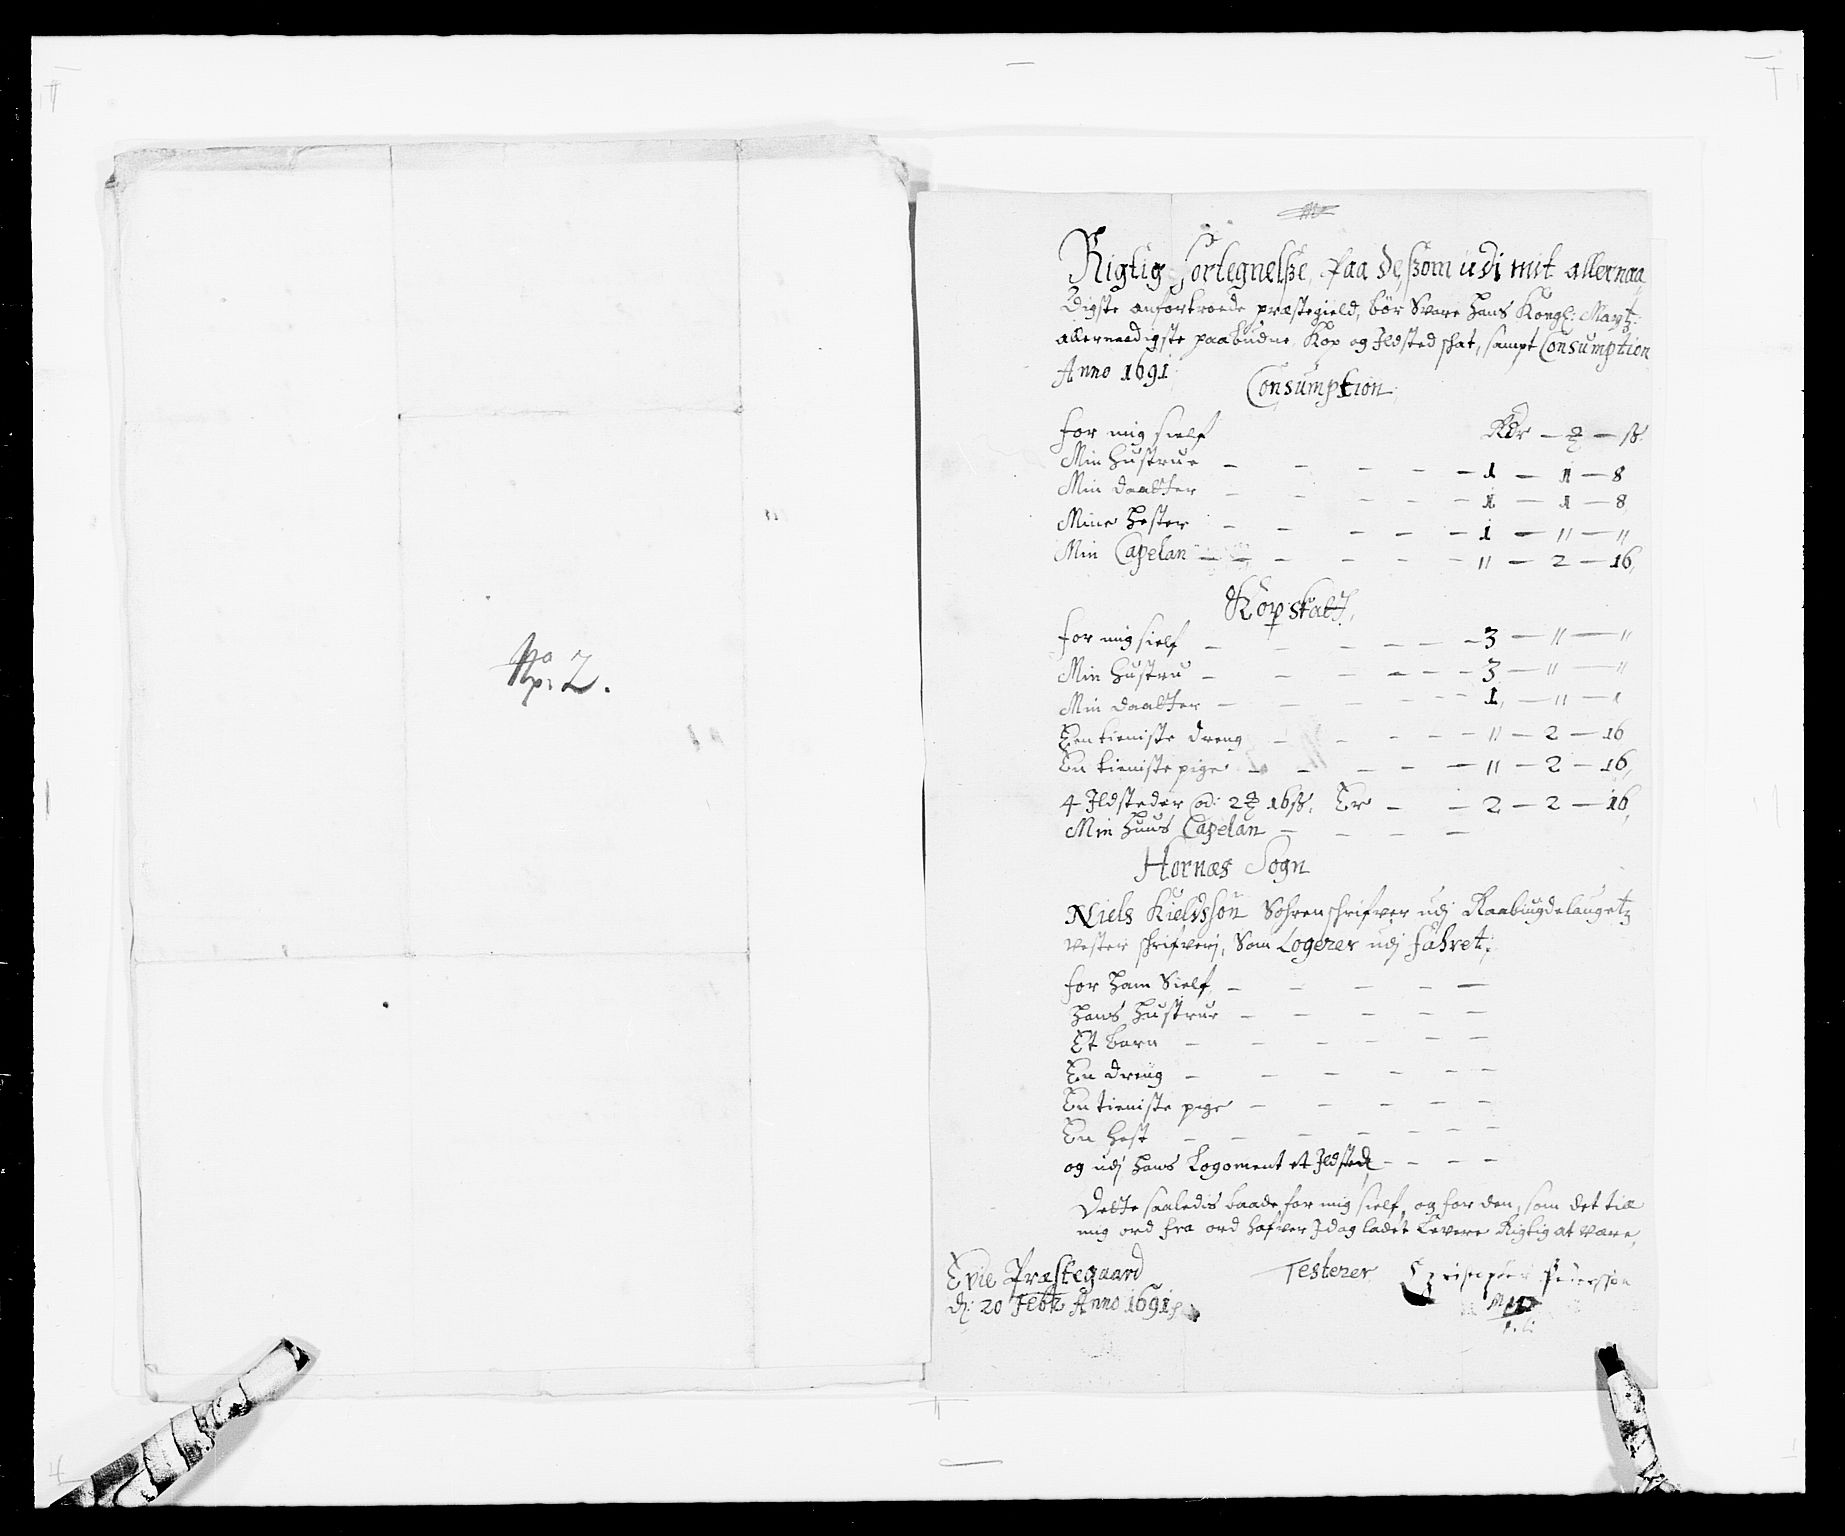 No 2.
Rigtig Fortegnelsse, paa de, ssom udi mit allernaa„
digste anfortroede præstegield, bör Svare hans Kongl: Maytz:
allernaadigste paabudne Kop og Ildsted skat, sampt Consumption
Anno 1691
Consumption
for mig sielf Rdr — ß.
Min hustrue — — — — — 1 — 1 — 8
Min daatter — — — — — 1 — 1 — 8
Mine hester — — — — — 1 — " — "
Min Capelan — — — — — " — 2 — 16,
Kopskatt,
for mig sielf — — — — — 3 — " — "
Min hustru — — — — — 3 — " — "
Min daatter — — — — — 1, — " — "
Een tieniste dreng — — — — " — 2 — 16
En tieniste pige — — — — " — 2 — 16,
4 Ildsteder 2 16 ß. Er — — 2 — 2 — 16,
Min huus Capelan — — — —
Hornæs Sogn
Niels Kieldsson Sohrenschrifver udj Raabiugdelaugetz
vester schrifverj, Som Logerer udj fahret,
for ham Sielf — — — — —
hans hustrue — — — — —
Et barn — — — — — —
En dreng — — — — — —
En tieniste pige — — — — —
En hest — — — — — — —
og udj hans Logoment et Ildsted — — —
Dette saaledis baade for mig sielf, og for den, som det till
mig ord fra ord hafver Idag ladet Levere Rigtig at være,
Evie Præstegaard Testerer Pedersson
d: 20 Febr Anno 1691